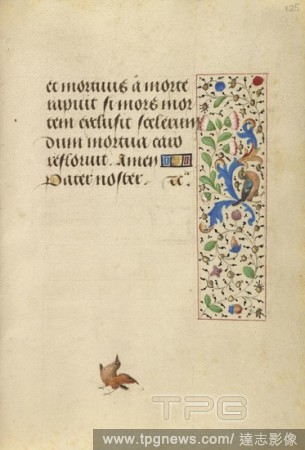 125
et mortuus à morte
rapuit si mors mor
tem exclusit scelerum
dum mortua caro
refloruit. Amen
Pater noster. &c.
TPG
www.tpgnews.com/達志影像